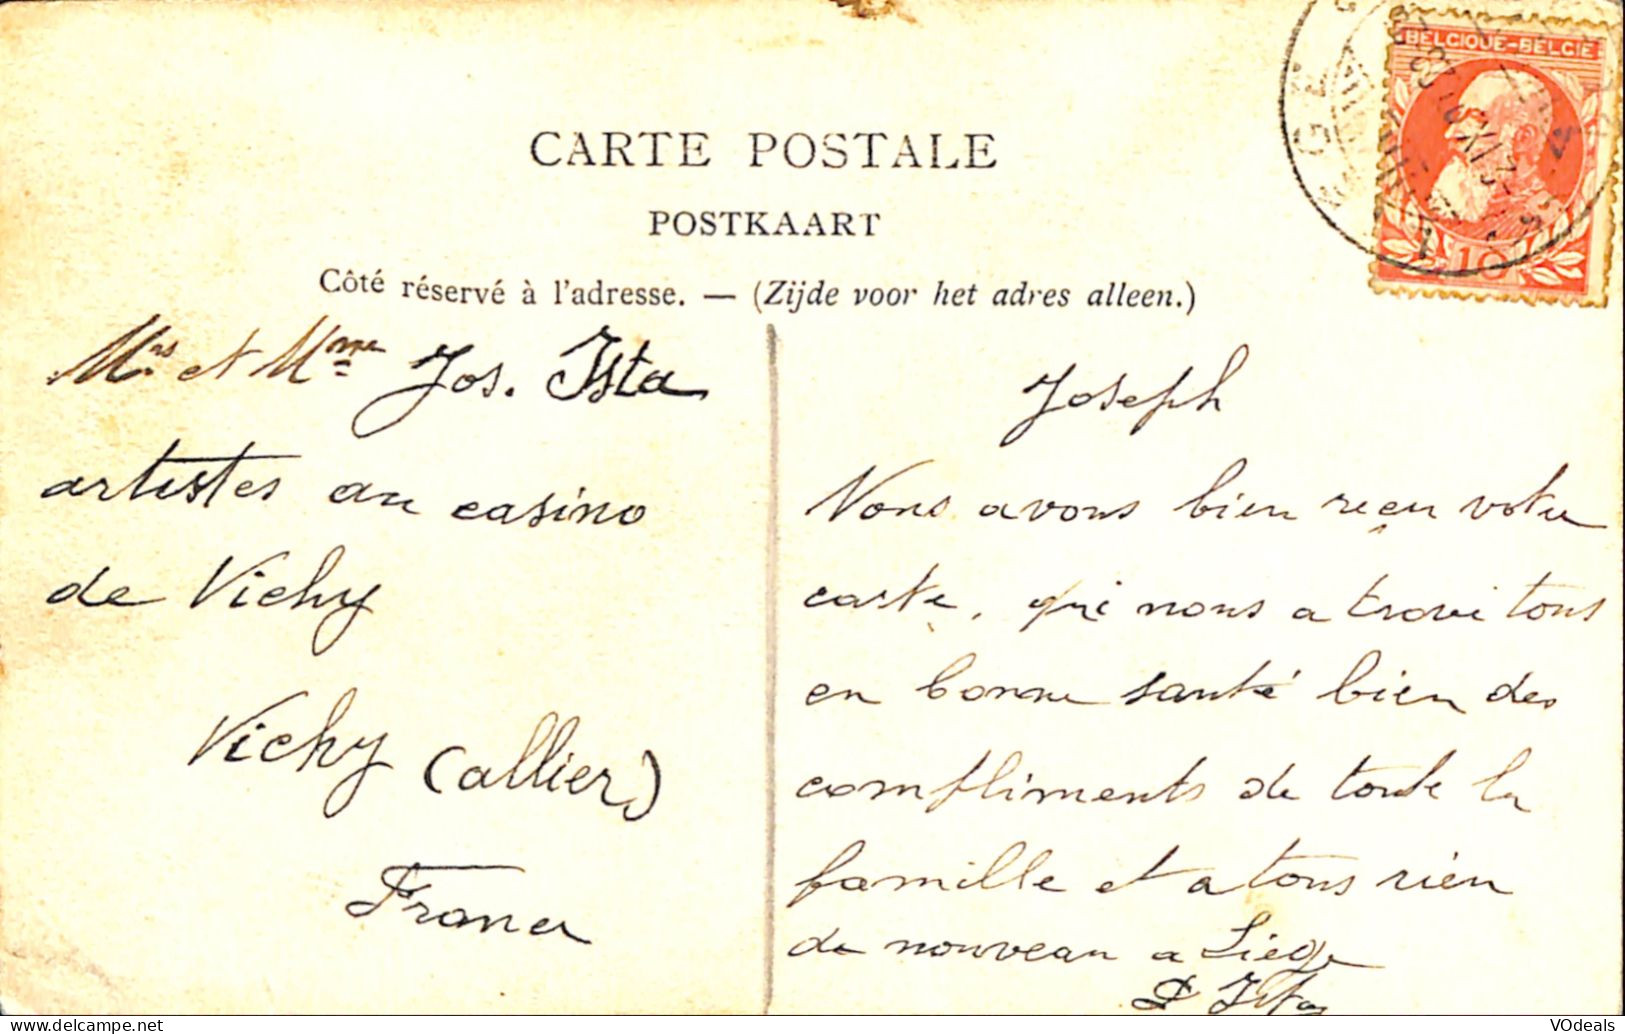 BELGIQUE-BELGIË
10
CARTE POSTALE
POSTKAART
Côté réservé à l'adresse. — (Zijde voor het adres alleen.)
Mrs et Mme Jos. Ista
artistes au casino
de Vichy
Vichy (allier)
France
Joseph
Nous avons bien reçu votre
carte, qui nous a trové tous
en bonne santé bien des
compliments de toute la
famille et a tous rien
de nouveau a Liége
Ista
VOdeals